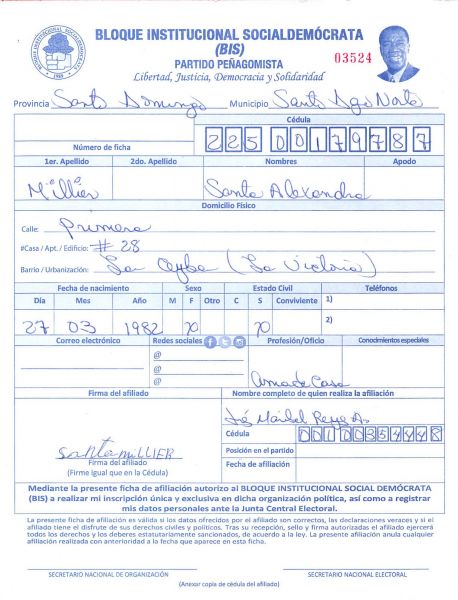 BLOQUE INSTITUCIONAL SOCIALDEMÓCRATA
(BIS)
PARTIDO PEÑAGOMISTA
Libertad, Justicia, Democracia y Solidaridad
03524
Provincia Santo Domingo Municipio Santo Dgo Norte
Cédula
Número de ficha 225 0017978 7
1er. Apellido 2do. Apellido Nombres Apodo
Millier Santa Alexandra
Domicilio Físico
Calle: Primera
#Casa / Apt. / Edificio: # 28
Barrio / Urbanización: La Ceyba (La Victoria)
Fecha de nacimiento Sexo Estado Civil Teléfonos
Día Mes Año M F Otro C S Conviviente 1)
27 03 1982 X X 2)
Correo electrónico Redes sociales Profesión/Oficio Conocimientos especiales
@
@
@ Ama de Casa
Firma del afiliado Nombre completo de quien realiza la afiliación
Cédula 001 0035444 8
Santa MILLIER Posición en el partido
Firma del afiliado
(Firme igual que en la Cédula) Fecha de afiliación
Mediante la presente ficha de afiliación autorizo al BLOQUE INSTITUCIONAL SOCIAL DEMÓCRATA
(BIS) a realizar mi inscripción única y exclusiva en dicha organización política, así como a registrar
mis datos personales ante la Junta Central Electoral.
La presente ficha de afiliación es válida si los datos ofrecidos por el afiliado son correctos, las declaraciones veraces y si el
afiliado tiene el disfrute de sus derechos civiles y políticos. Tras su recepción, sello y firma autorizadas el afiliado ejercerá
todos los derechos y los deberes estatutariamente sancionados, de acuerdo a la ley. La presente afiliación anula cualquier
afiliación realizada con anterioridad a la fecha que aparece en esta ficha.
SECRETARIO NACIONAL DE ORGANIZACIÓN SECRETARIO NACIONAL ELECTORAL
(Anexar copia de cédula del afiliado)